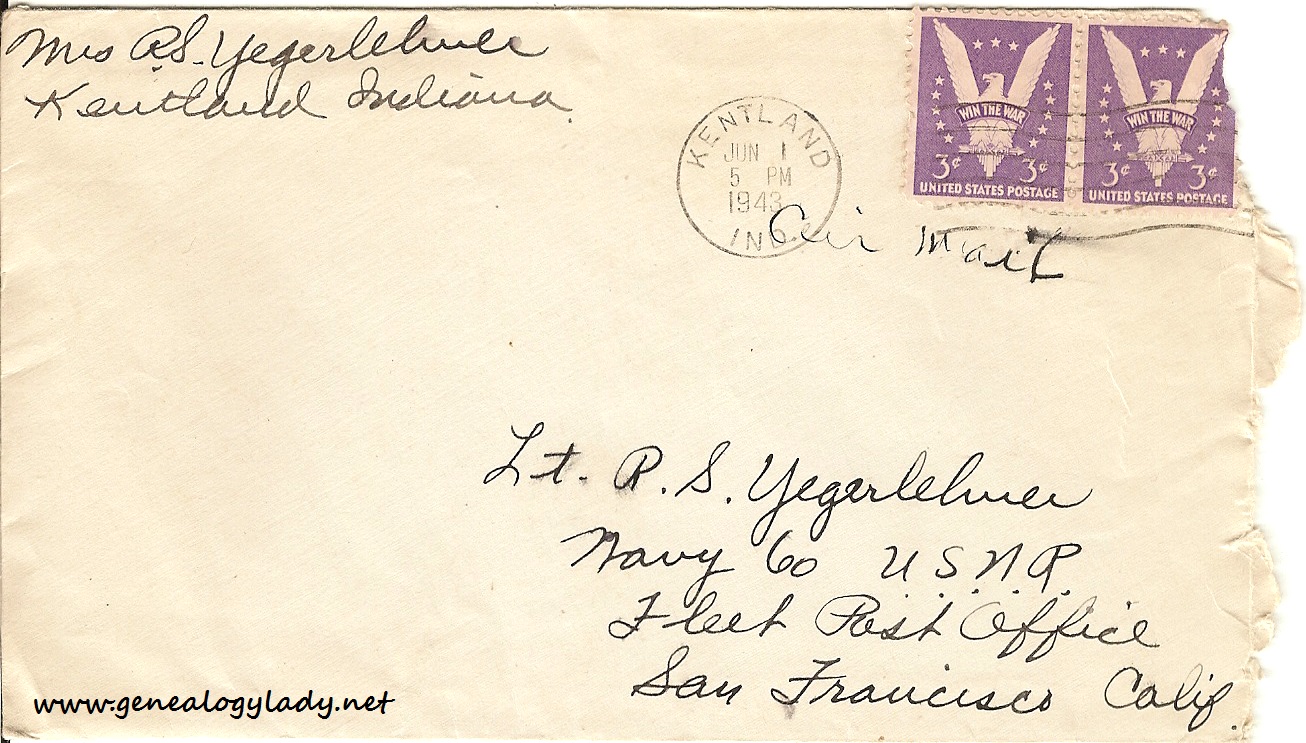 Mrs R.S. Yegerlehner
Kentland Indiana
KENTLAND
JUN 1
5 PM
1943
IND.
WIN THE WAR
3¢ 3¢
UNITED STATES POSTAGE
WIN THE WAR
3¢ 3¢
UNITED STATES POSTAGE
Air Mail
Lt. R. S. Yegerlehner
Navy 60 U.S.N.R.
Fleet Post Office
San Francisco Calif.
www.genealogylady.net